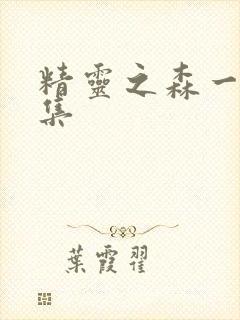 精靈之森一
集
葉霞翟